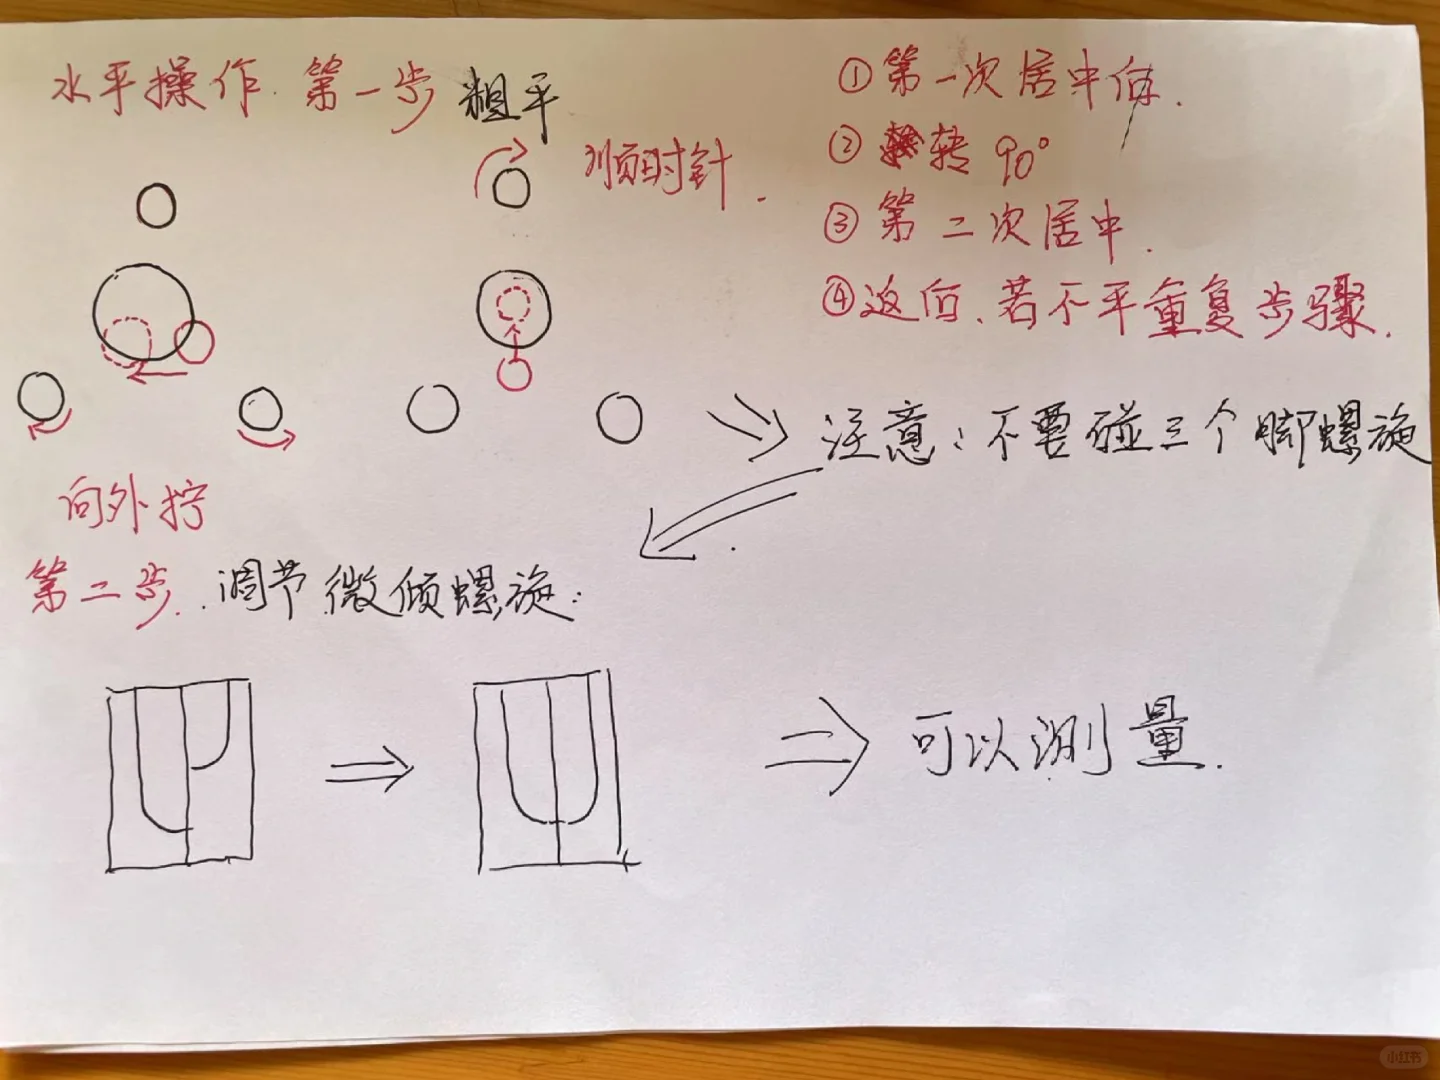 水平操作.第一步 粗平
顺时针.
①第一次居中后.
②转90°
③第二次居中.
④返回、若不平重复步骤.
注意:不要碰三个脚螺旋
向外拧
第二步.调节微倾螺旋:
可以测量.
小红书